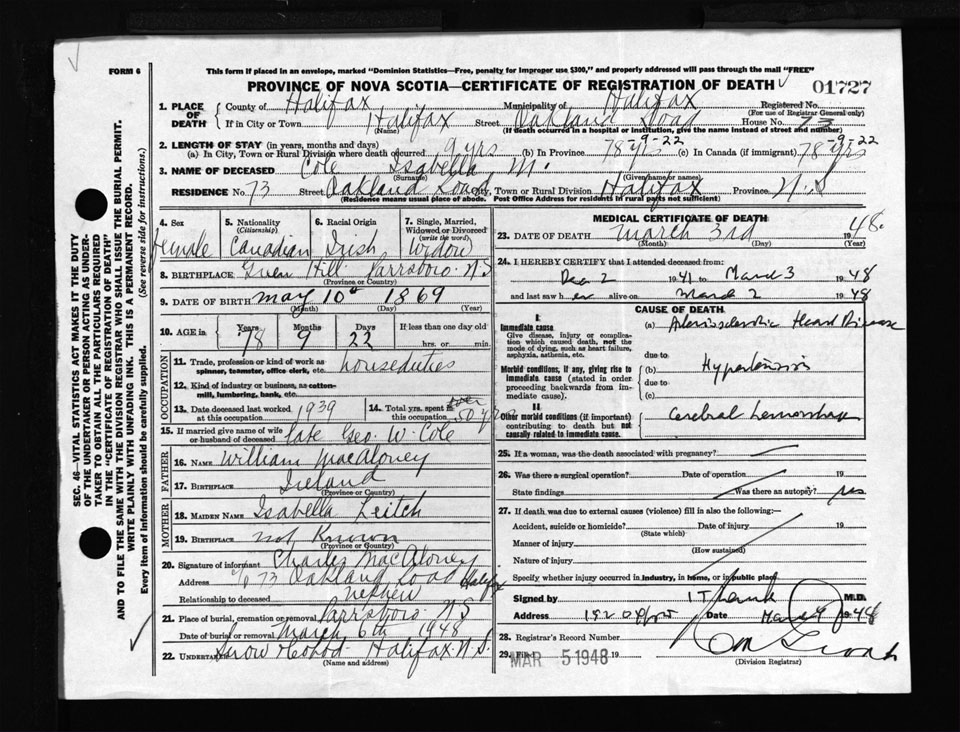 FORM 6
This form if placed in an envelope, marked "Dominion Statistics—Free, penalty for improper use $300," and properly addressed will pass through the mail "FREE"
PROVINCE OF NOVA SCOTIA—CERTIFICATE OF REGISTRATION OF DEATH
01727
1. PLACE OF DEATH County of Halifax Municipality of Halifax Registered No.
(For use of Registrar General only)
If in City or Town Halifax Street Oakland Road House No. 73
(Name) (If death occurred in a hospital or institution, give the name instead of street and number)
2. LENGTH OF STAY (in years, months and days)
(a) In City, Town or Rural Division where death occurred 9 yrs (b) In Province 78 yrs-9-22 (c) In Canada (if immigrant) 78 yrs-9-22
3. NAME OF DECEASED Cole Isabella M.
(Surname) (Given name or names)
RESIDENCE No. 73 Street Oakland Road City, Town or Rural Division Halifax Province N.S
(Residence means usual place of abode. Post Office Address for residents in rural parts not sufficient)
4. Sex female
5. Nationality (Citizenship) Canadian
6. Racial Origin Irish
7. Single, Married, Widowed or Divorced (write the word) Widow
8. BIRTHPLACE Hill Parrsboro N.S
(Province or Country)
9. DATE OF BIRTH May 10th 1869
(Month) (Day) (Year)
10. AGE in Years 78 Months 9 Days 22 If less than one day old hrs. or min.
OCCUPATION
11. Trade, profession or kind of work as spinner, teamster, office clerk, etc. houseduties
12. Kind of industry or business, as cotton-mill, lumbering, bank, etc.
13. Date deceased last worked at this occupation 1939
14. Total yrs. spent in this occupation over 50 yrs
15. If married give name of wife or husband of deceased late Geo. W. Cole
FATHER
16. NAME William MacAloney
17. BIRTHPLACE Ireland
(Province or Country)
MOTHER
18. MAIDEN NAME Isabella Leitch
19. BIRTHPLACE not Known
(Province or Country)
20. Signature of informant Charles MacAloney
Address c/o 73 Oakland Road Halifax
Relationship to deceased nephew
21. Place of burial, cremation or removal Parrsboro N.S
Date of burial or removal March 6th 1948
22. Undertaker Snow Halifax N.S.
(Name and address)
MEDICAL CERTIFICATE OF DEATH
23. DATE OF DEATH March 3rd 1948.
(Month) (Day) (Year)
24. I HEREBY CERTIFY that I attended deceased from:
Dec 2 1941 to March 3 1948
and last saw her alive on March 2 1948
CAUSE OF DEATH
I.
Immediate cause
Give disease, injury or complication which caused death, not the mode of dying, such as heart failure, asphyxia, asthenia, etc.
(a) Arteriosclerotic Heart Disease
due to
Morbid conditions, if any, giving rise to immediate cause (stated in order proceeding backwards from immediate cause).
(b) Hypertension
due to
(c)
II.
Other morbid conditions (if important) contributing to death but not causally related to immediate cause.
Cerebral hemorrhage
25. If a woman, was the death associated with pregnancy?
26. Was there a surgical operation? Date of operation 19
State findings Was there an autopsy? no
27. If death was due to external causes (violence) fill in also the following:—
Accident, suicide or homicide? Date of injury 19
(State which)
Manner of injury
(How sustained)
Nature of injury
Specify whether injury occurred in industry, in home, or in public place
Signed by M.D.
Address Date 1948
28. Registrar's Record Number
29. Filed MAR 5 1948 19
(Division Registrar)
SEC. 46—VITAL STATISTICS ACT MAKES IT THE DUTY
OF THE UNDERTAKER OR PERSON ACTING AS UNDER-
TAKER TO OBTAIN ALL THE PARTICULARS REQUIRED
IN THE "CERTIFICATE OF REGISTRATION OF DEATH"
AND TO FILE THE SAME WITH THE DIVISION REGISTRAR WHO SHALL ISSUE THE BURIAL PERMIT.
WRITE PLAINLY WITH UNFADING INK. THIS IS A PERMANENT RECORD.
Every item of information should be carefully supplied. (See reverse side for instructions.)